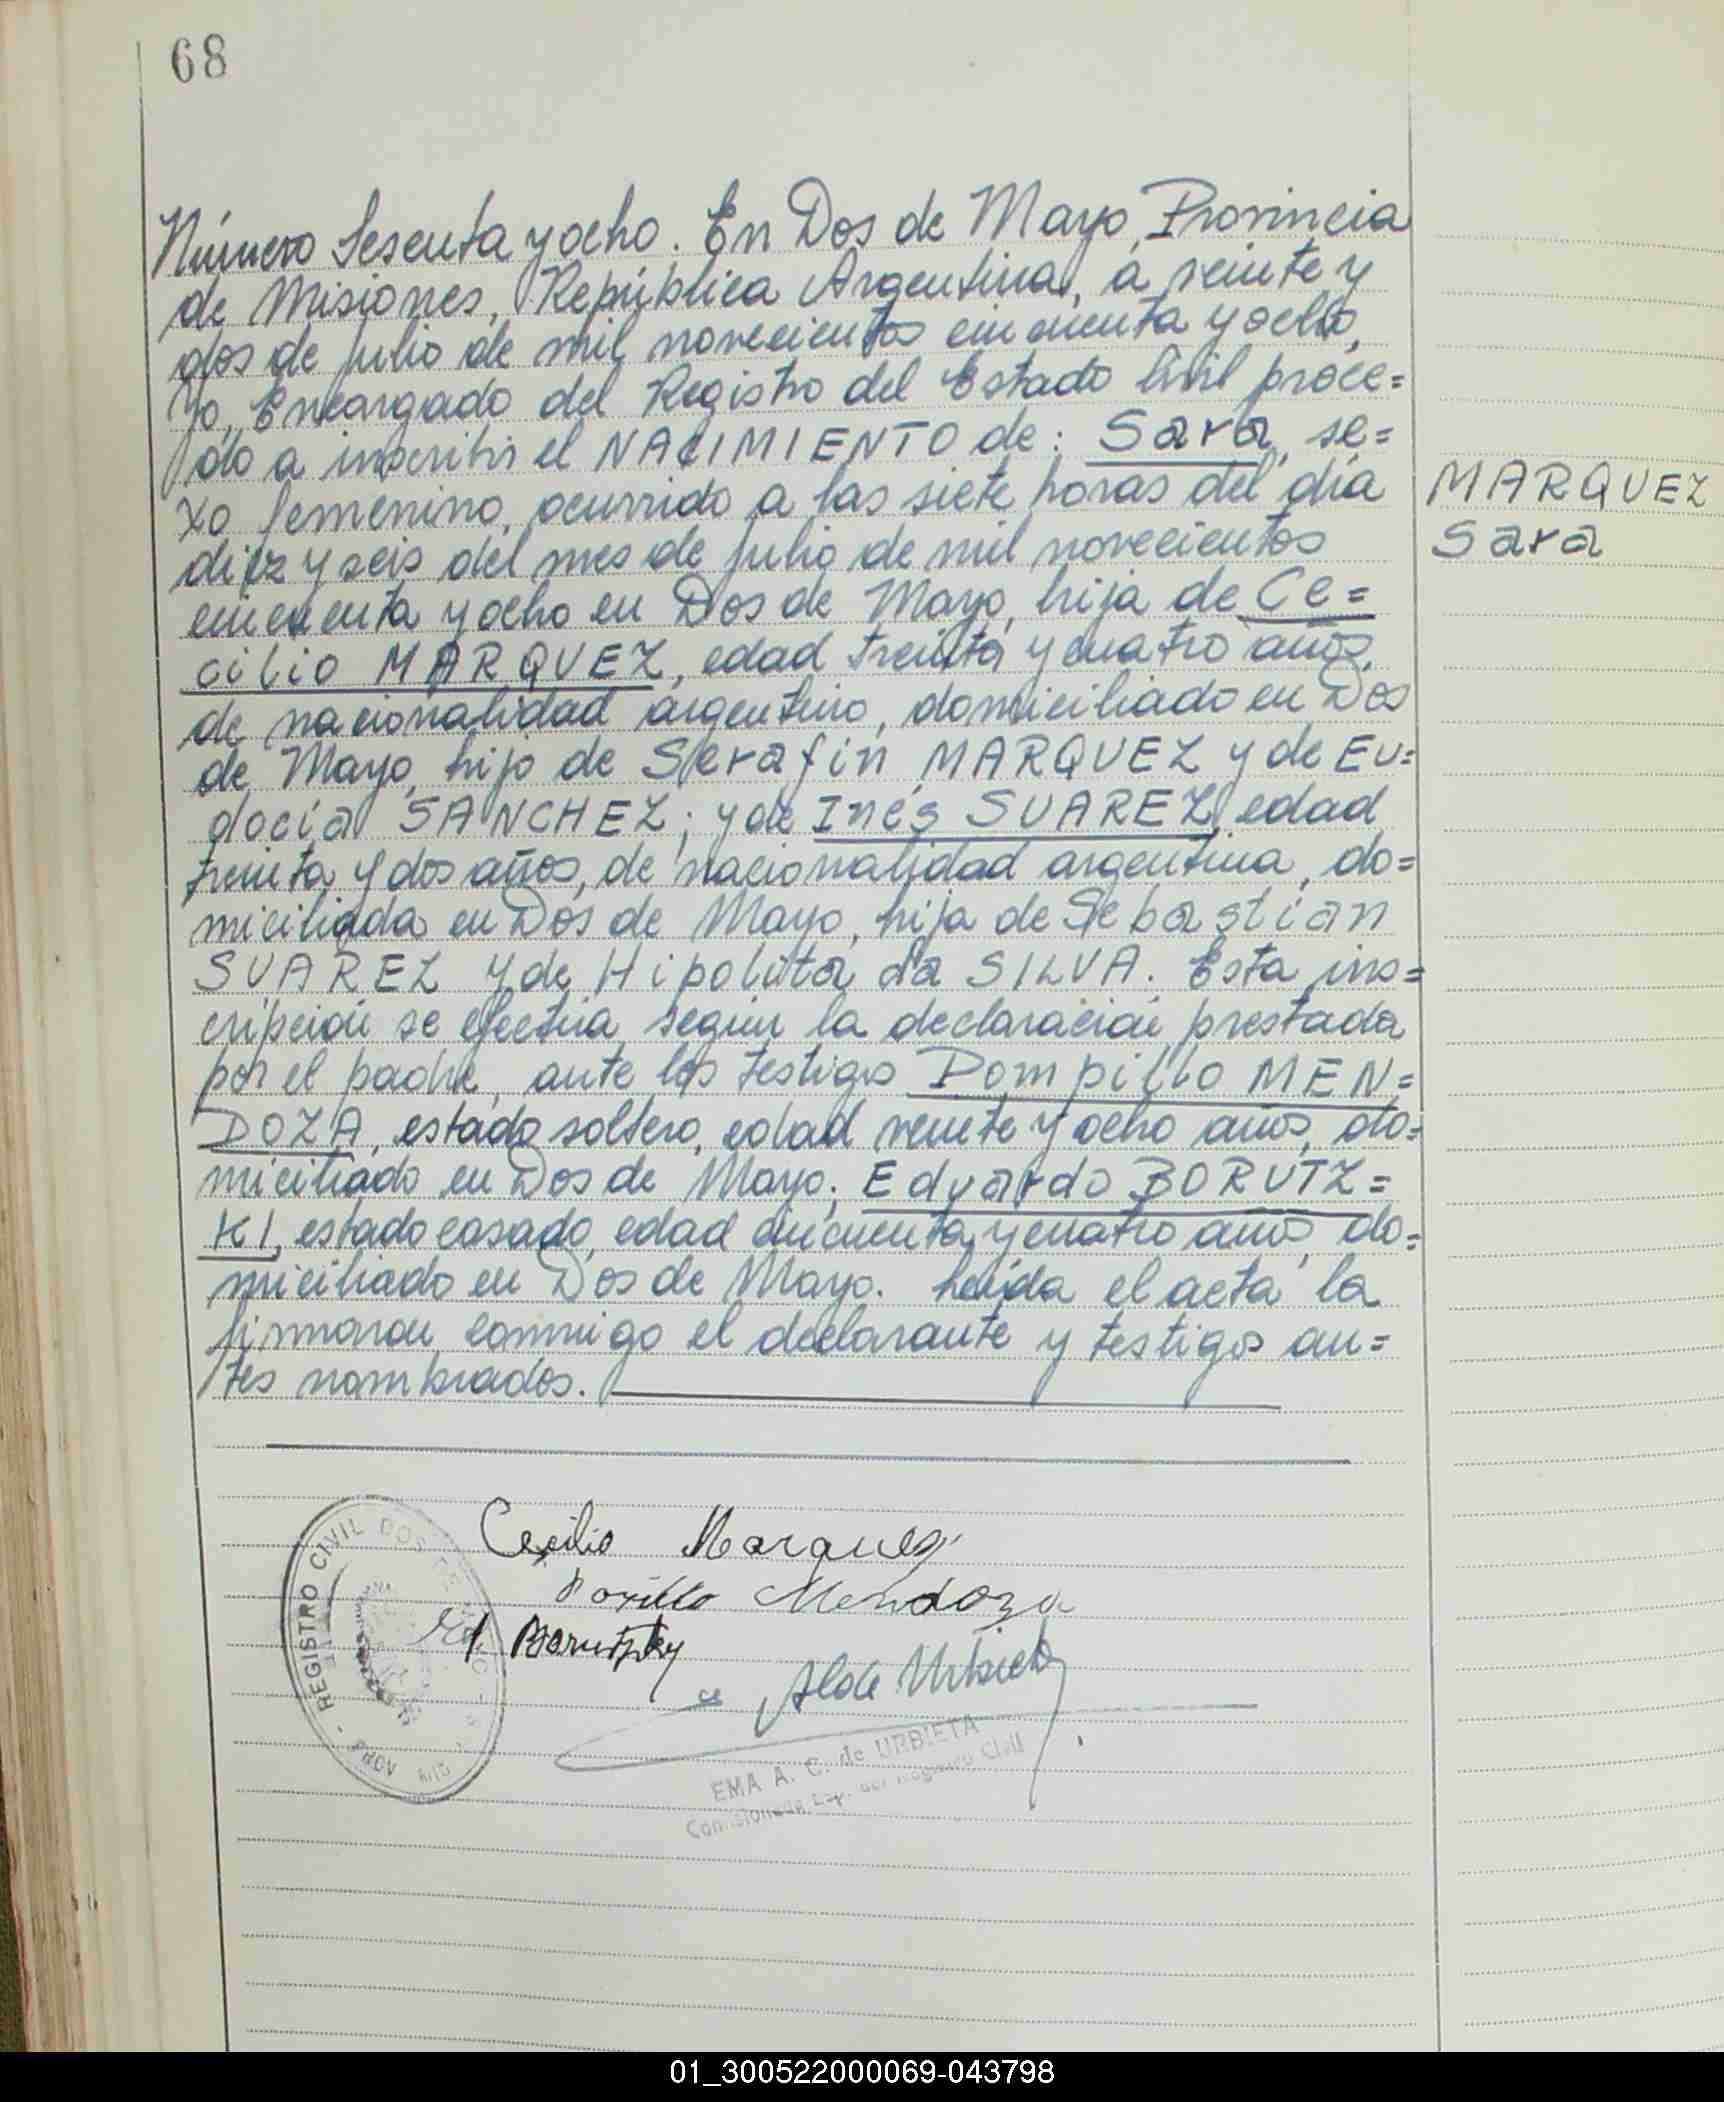 68
Número Sesenta y ocho. En Dos de Mayo, Provincia
de Misiones, República Argentina, a veinte y
dos de julio de mil novecientos cincuenta y ocho,
Yo, Encargado del Registro del Estado Civil proce=
do a inscribir el NACIMIENTO de: Sara, se=
xo femenino, ocurrido a las siete horas del día
diez y seis del mes de julio de mil novecientos
cincuenta y ocho en Dos de Mayo, hija de Ce=
cilio MARQUEZ, edad treinta y cuatro años,
de nacionalidad argentino, domiciliado en Dos
de Mayo, hijo de Serafin MARQUEZ y de Eu=
docia SANCHEZ; y de Inés SUAREZ, edad
treinta y dos años, de nacionalidad argentina, do=
miciliada en Dos de Mayo, hija de Sebastian
SUAREZ y de Hipolita da SILVA. Esta ins=
cripción se efectúa según la declaración prestada
por el padre, ante los testigos Pompilio MEN=
DOZA, estado soltero, edad veinte y ocho años, do=
miciliado en Dos de Mayo; Eduardo BORUTZ=
KI, estado casado, edad cincuenta y cuatro años, do=
miciliado en Dos de Mayo. Leída el acta la
firmaron conmigo el declarante y testigos an=
tes nombrados.
MARQUEZ
Sara
Cecilio Marquez
Mendoza
Borutzky
REGISTRO CIVIL DOS DE MAYO
EMA A. C. de URBIETA
Registro Civil
01_300522000069-043798